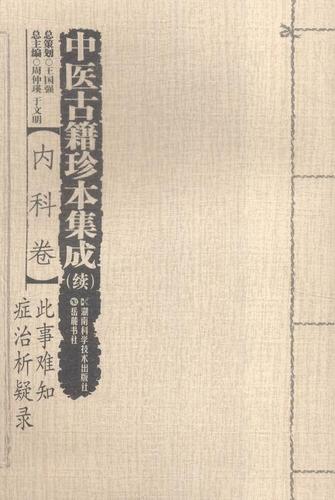 中医古籍珍本集成(续)
总策划◎王国强
总主编◎周仲瑛 于文明
【内科卷】
湖南科学技术出版社
岳麓书社
此事难知
症治析疑录